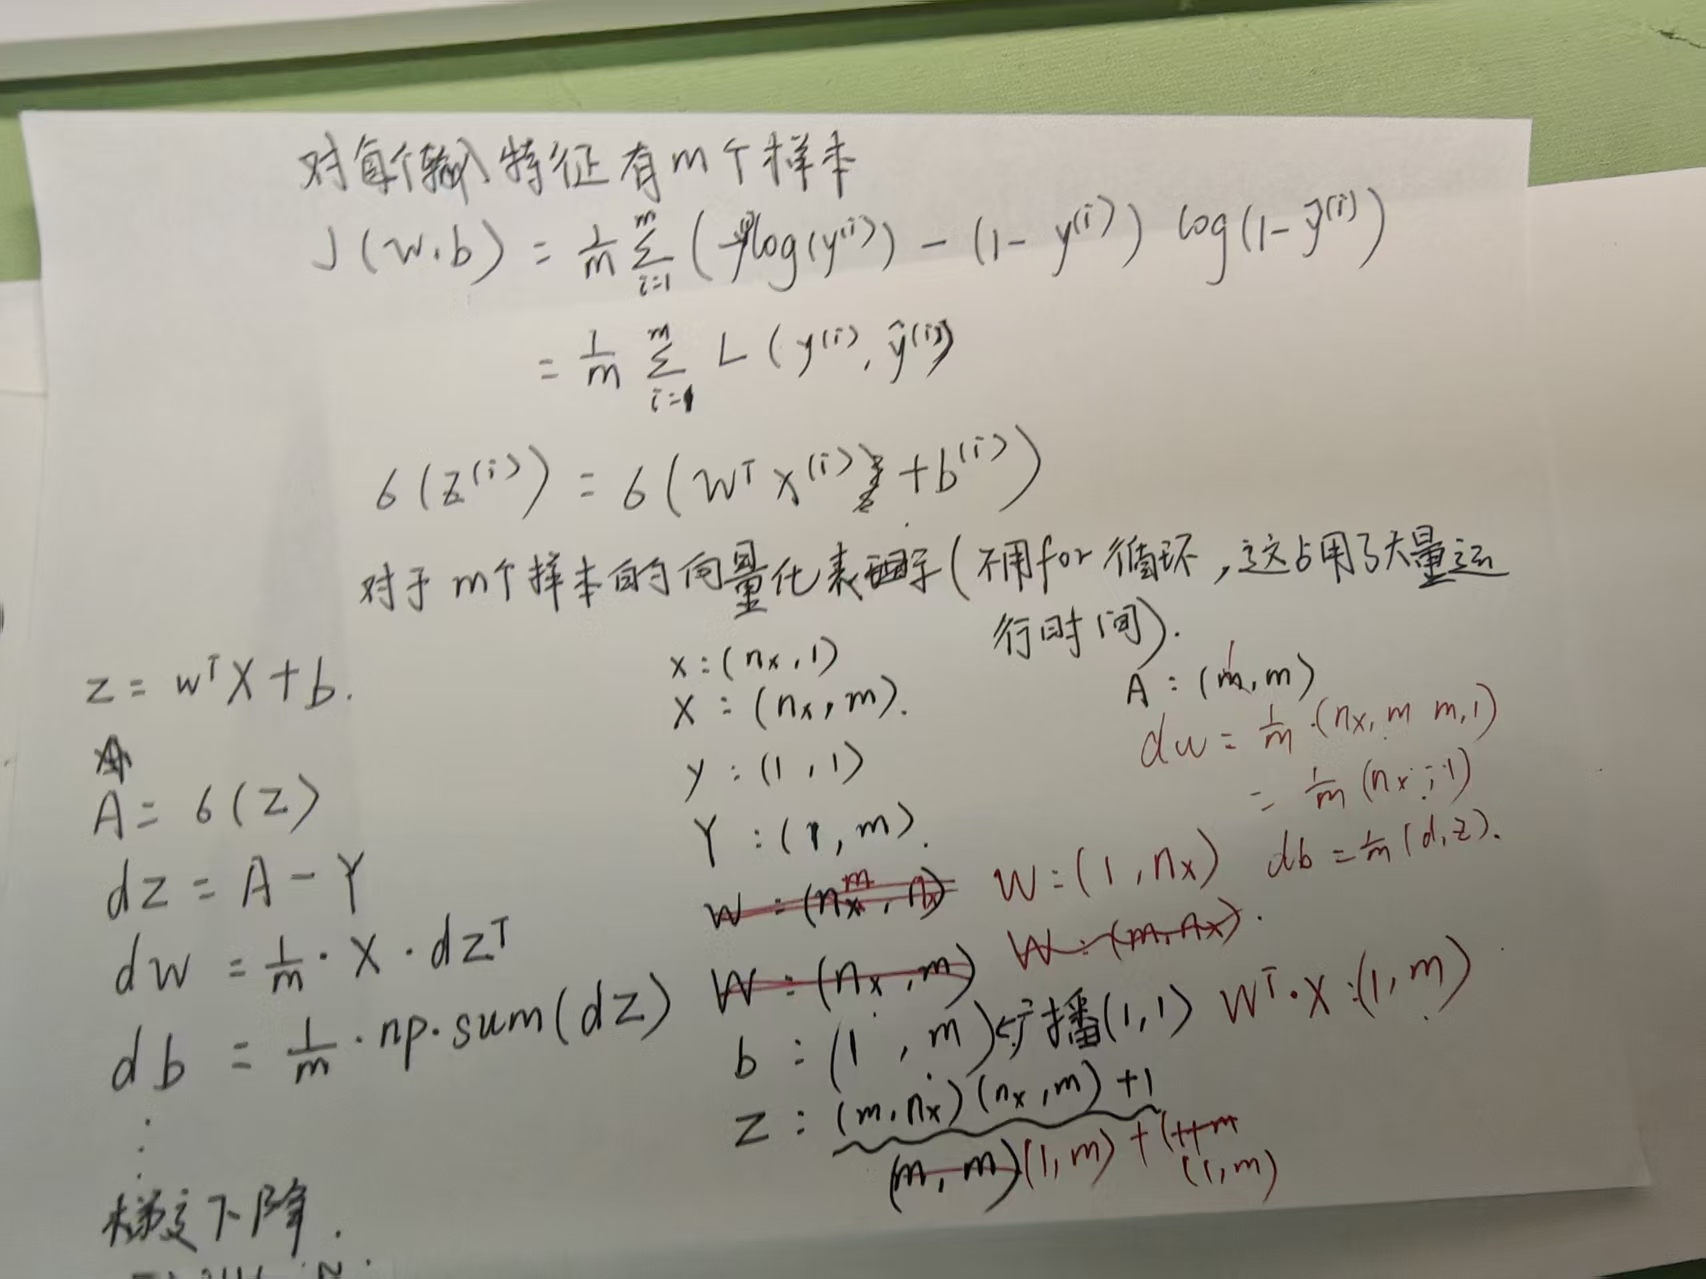 对每个输入特征有m个样本
J(w.b) = 1/m Σ_{i=1}^{m} (-y^{(i)}log(y^{(i)}) - (1-y^{(i)}) log(1-ŷ^{(i)})
= 1/m Σ_{i=1}^{m} L(y^{(i)}, ŷ^{(i)})
6(z^{(i)}) = 6(W^T x^{(i)} + b^{(i)})
对于m个样本的向量化表示(不用for循环,这占用了大量运
行时间).
z = w^T X + b.
A = 6(Z)
dz = A - Y
dw = 1/m · X · dz^T
db = 1/m · np.sum(dZ)
⋮
梯度下降.
x : (n_x, 1)
X : (n_x, m).
y : (1, 1)
Y : (1, m).
W : (n_x, m)
b : (1, m) ← 广播(1,1)
Z : (m, n_x)(n_x, m) + 1
(m, m)(1, m) + (1, m)
A : (1, m)
dw = 1/m ·(n_x, m m, 1)
= 1/m (n_x, 1)
db = 1/m (d, z).
W : (1, n_x)
W : (m, n_x).
W^T · X : (1, m)